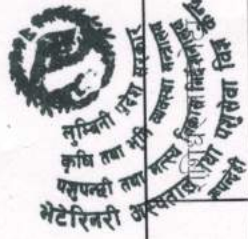 लुम्बिनी प्रदेश सरकार
कृषि तथा भूमि व्यवस्था मन्त्रालय
पशुपन्छी तथा मत्स्य विकास निर्देशनालय
भेटेरिनरी अस्पताल तथा पशुसेवा विज्ञ
रूपन्देही